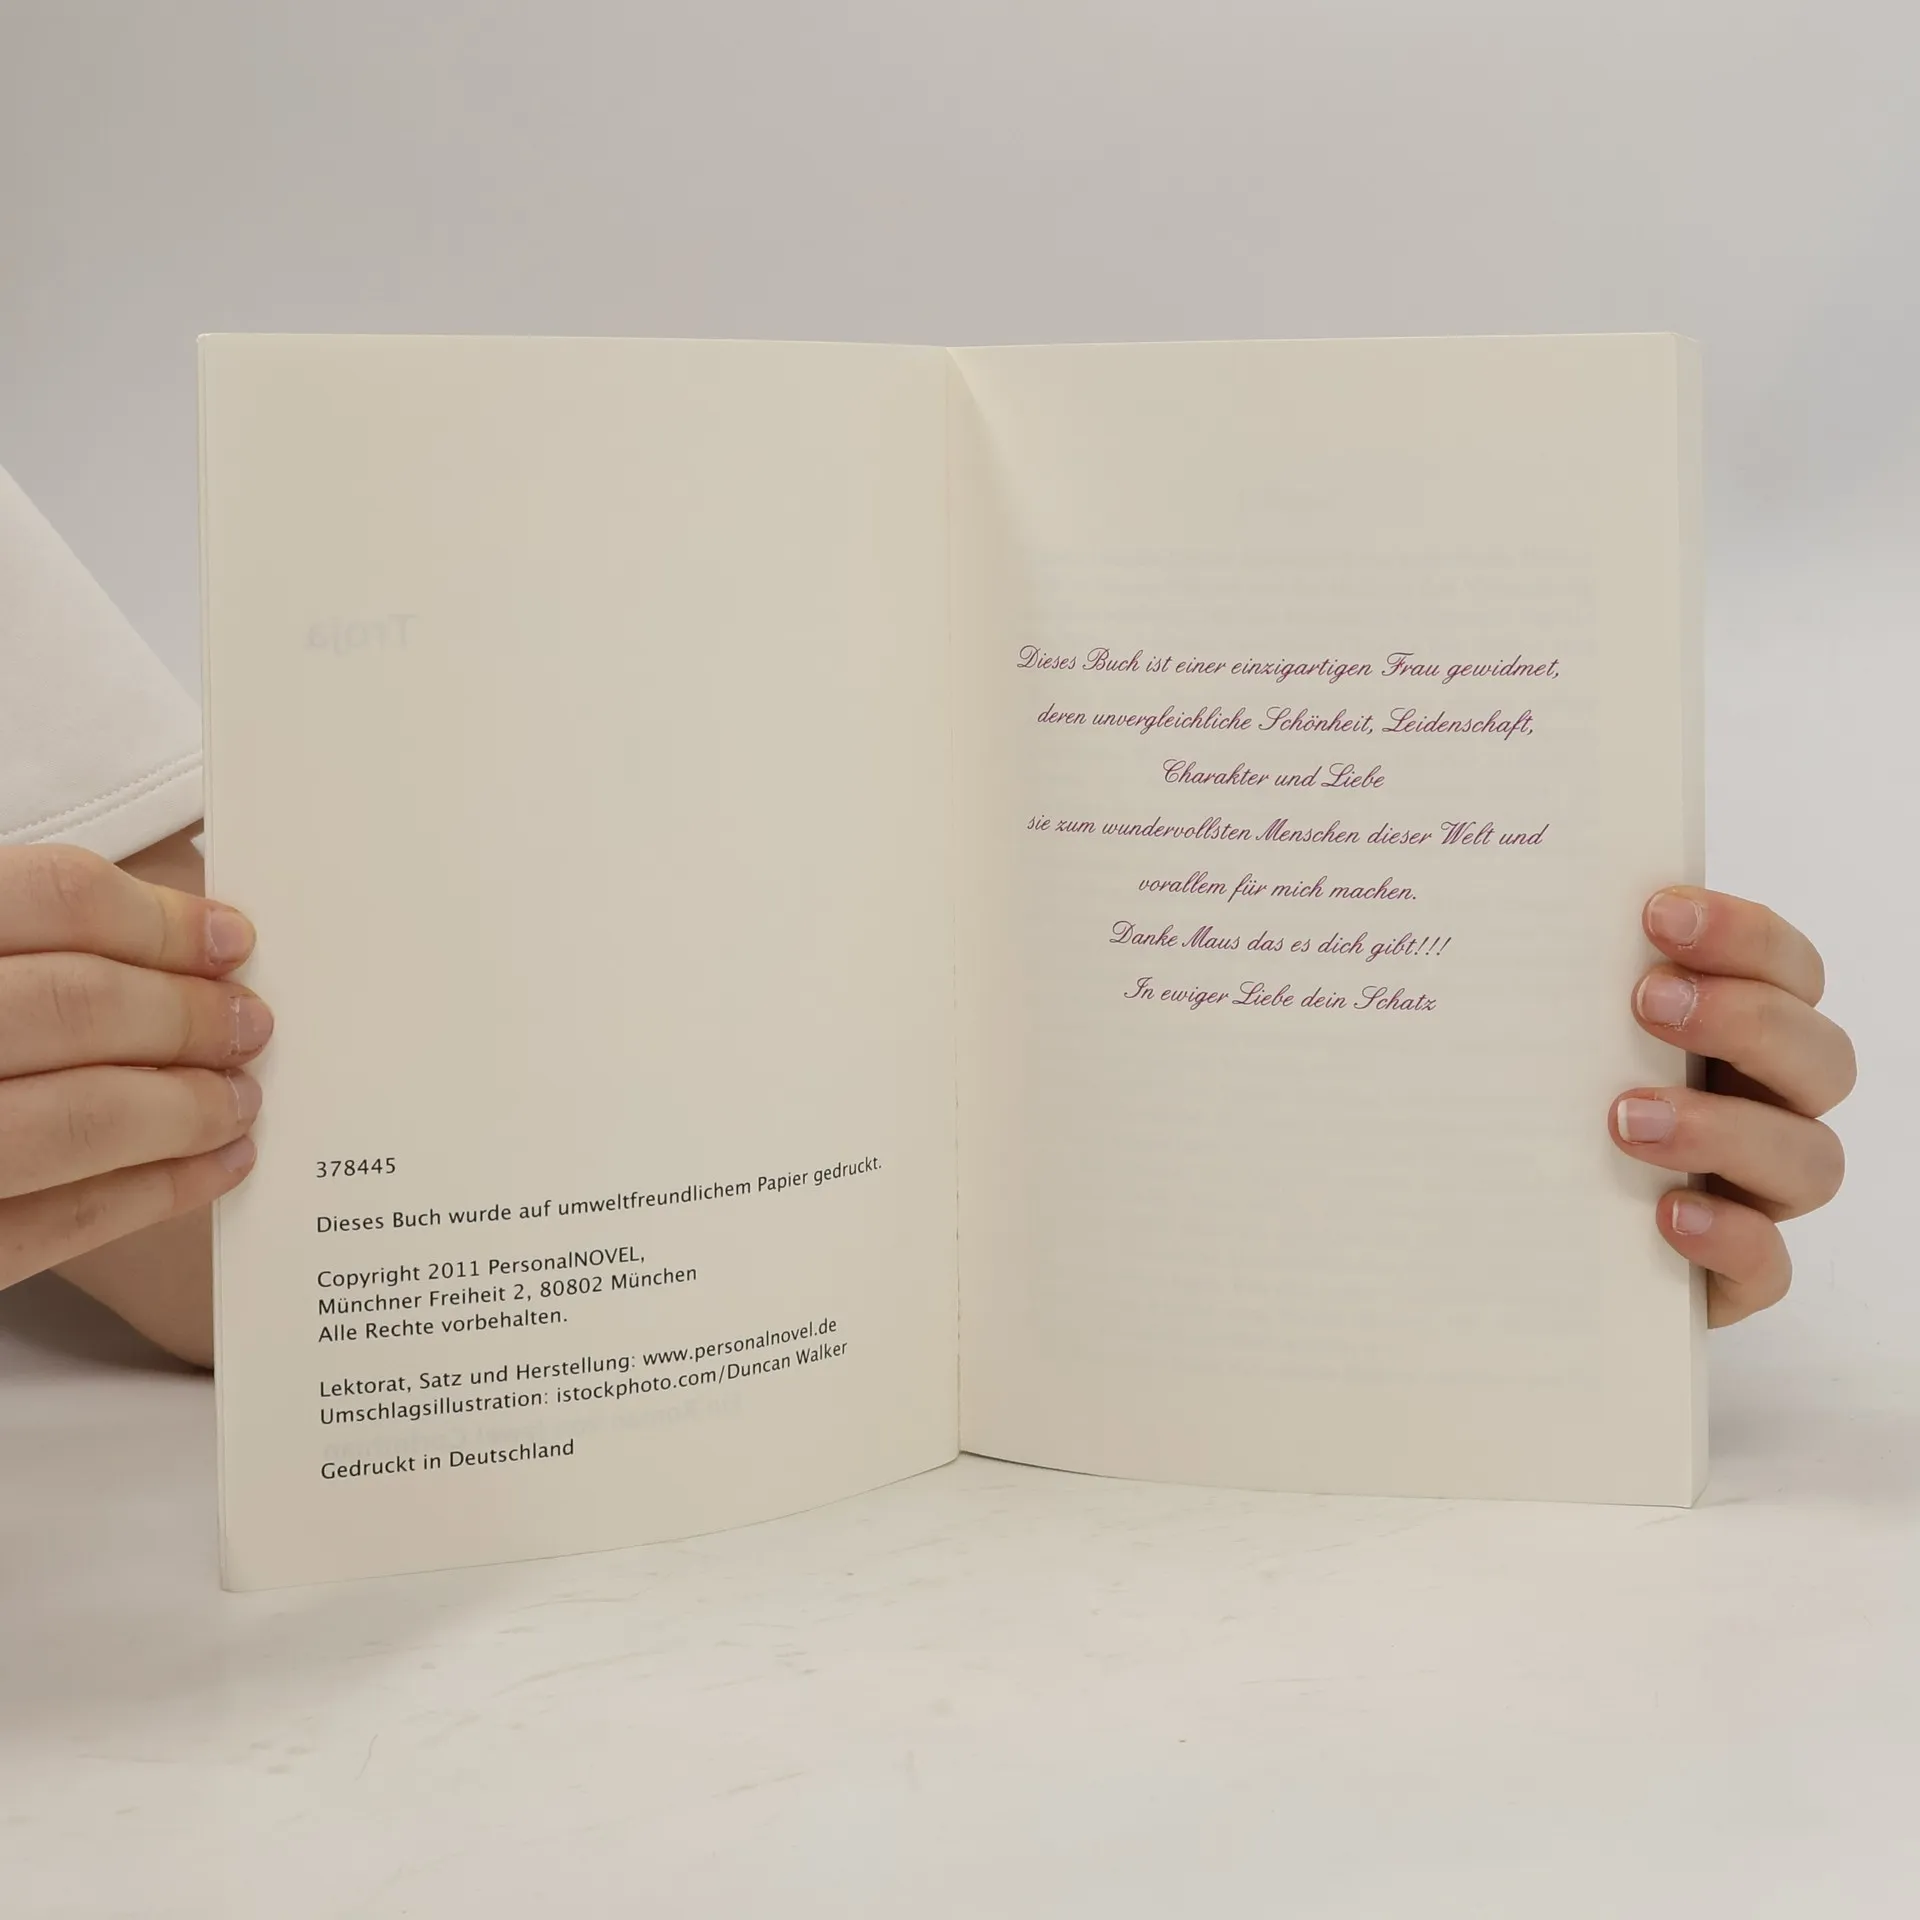 Troja
378445
Dieses Buch wurde auf umweltfreundlichem Papier gedruckt.
Copyright 2011 PersonalNOVEL,
Münchner Freiheit 2, 80802 München
Alle Rechte vorbehalten.
Lektorat, Satz und Herstellung: www.personalnovel.de
Umschlagsillustration: istockphoto.com/Duncan Walker
Gedruckt in Deutschland
Dieses Buch ist einer einzigartigen Frau gewidmet,
deren unvergleichliche Schönheit, Leidenschaft,
Charakter und Liebe
sie zum wundervollsten Menschen dieser Welt und
vorallem für mich machen.
Danke Maus das es dich gibt!!!
In ewiger Liebe dein Schatz